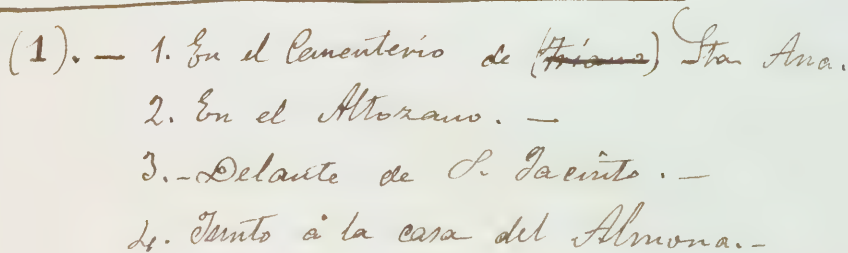 (1). — 1. En el Cementerio de (Triana) Sta. Ana.
2. En el Altozano. —
3. - Delante de S. Jacinto. —
4. Junto á la casa del Almona. -